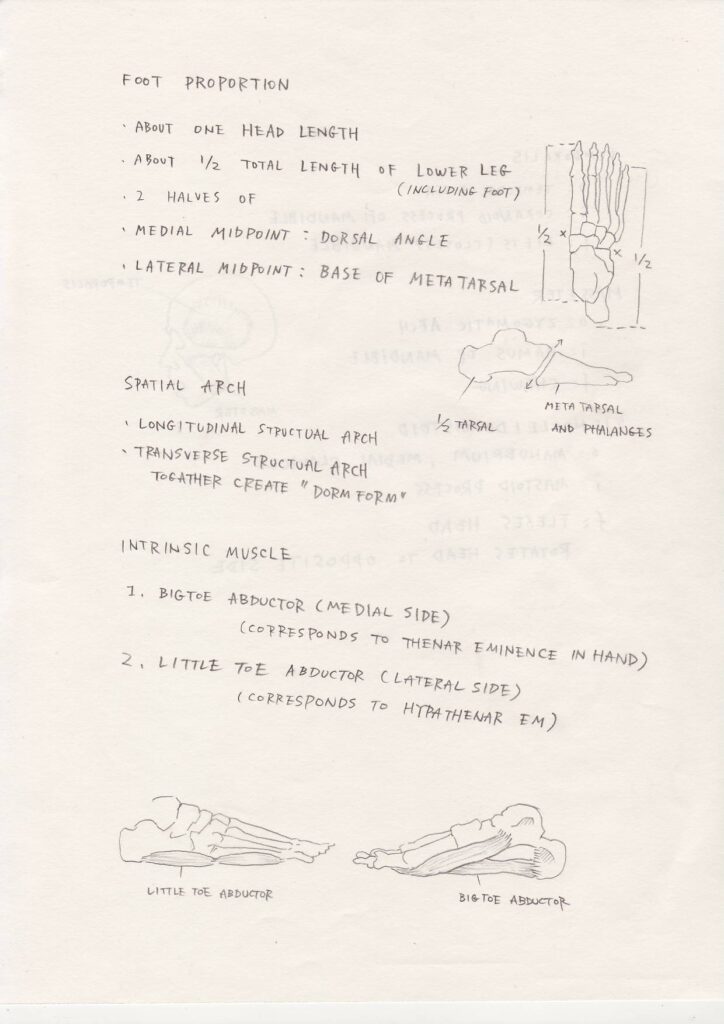 FOOT PROPORTION
· ABOUT ONE HEAD LENGTH
· ABOUT 1/2 TOTAL LENGTH OF LOWER LEG
(INCLUDING FOOT)
· 2 HALVES OF
· MEDIAL MIDPOINT : DORSAL ANGLE
· LATERAL MIDPOINT : BASE OF METATARSAL
1/2 x
x 1/2
1/2 TARSAL
METATARSAL
AND PHALANGES
SPATIAL ARCH
· LONGITUDINAL STRUCTUAL ARCH
· TRANSVERSE STRUCTUAL ARCH
TOGATHER CREATE "DORM FORM"
INTRINSIC MUSCLE
1. BIGTOE ABDUCTOR (MEDIAL SIDE)
(CORRESPONDS TO THENAR EMINENCE IN HAND)
2. LITTLE TOE ABDUCTOR (LATERAL SIDE)
(CORRESPONDS TO HYPATHENAR EM)
LITTLE TOE ABDUCTOR
BIGTOE ABDUCTOR